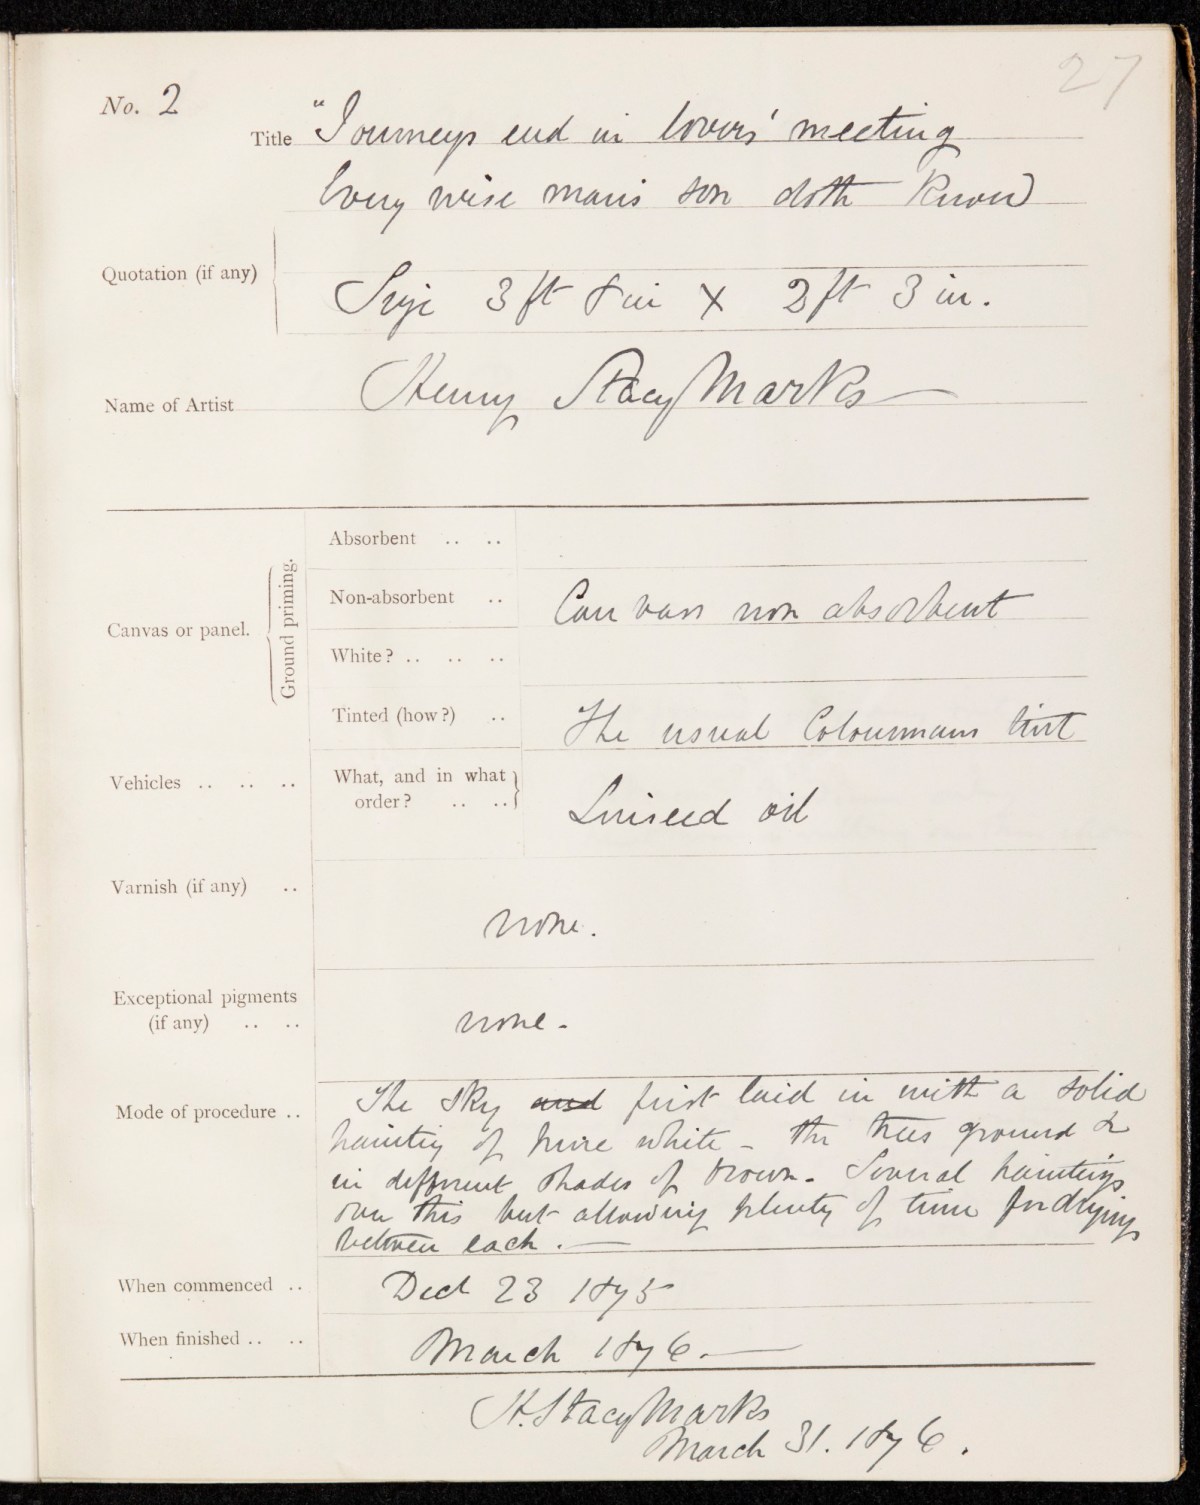 27
No. 2
Title "Journeys end in lovers' meeting
Every wise man's son doth know
Quotation (if any)
Size 3 ft 8 in X 2 ft 3 in.
Name of Artist Henry Stacy Marks
Canvas or panel.
Ground priming.
Absorbent .. ..
Non-absorbent .. Canvas non absorbent
White? .. .. ..
Tinted (how?) .. The usual Colourmans tint
Vehicles .. .. .. What, and in what
order? .. .. Linseed oil
Varnish (if any) .. none.
Exceptional pigments
(if any) .. .. none -
Mode of procedure .. The sky and first laid in with a solid
painting of pure white - the trees ground &
in different shades of brown. Several paintings
over this but allowing plenty of time for drying
between each. —
When commenced .. Dec 23 1875
When finished .. .. March 1876. —
H. Stacy Marks
March 31. 1876.